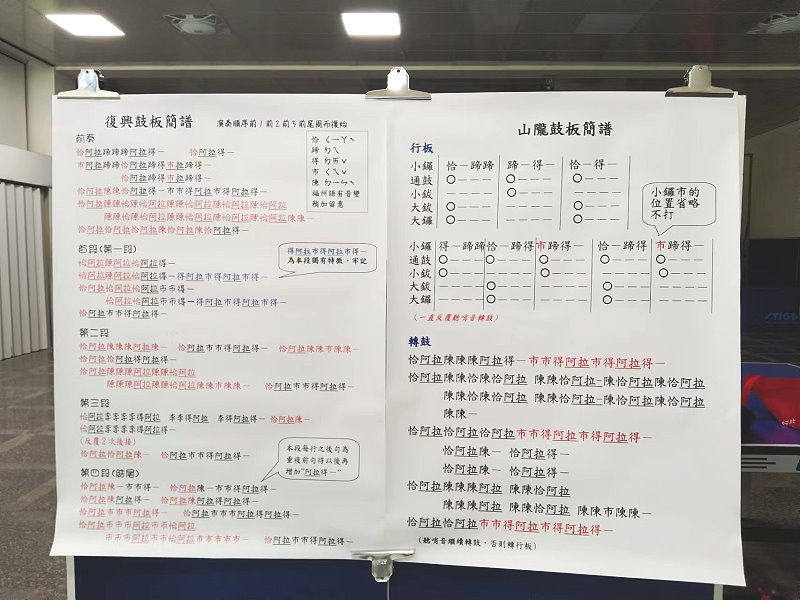 復興鼓板簡譜 演奏順序前1前2前3前尾周而復始
前奏
恰阿拉蹄蹄蹄阿拉得－ 恰阿拉得－
市阿拉蹄恰阿拉蹄得市拉蹄得－
恰阿拉蹄得市阿拉得－
恰阿拉陳陳恰阿拉得－市市得阿拉市得阿拉得－
恰阿拉陳陳恰恰阿拉陳陳恰阿拉陳恰阿拉陳恰阿拉
陳陳恰恰阿拉陳陳恰阿拉陳恰阿拉陳恰阿拉陳陳－
恰阿拉恰阿拉恰阿拉陳恰阿拉陳恰阿拉得－
恰 ㄑㄧㄚˋ
蹄 ㄉㄟ
得 ㄉㄞˇ
市 ㄑㄟˇ
陳 ㄉㄧㄣˋ
福州語有音變
稍加留意
首段(第一段)
恰阿拉陳阿拉恰阿拉得－
恰阿拉陳阿拉恰阿拉得－得阿拉市得阿拉市得－
恰阿拉恰阿拉市市得－
恰阿拉恰阿拉市市得－得阿拉市得阿拉市得－
恰阿拉市市得阿拉得－
得阿拉市得阿拉市得－
為本段獨有特徵，牢記
第二段
恰阿拉陳陳陳阿拉陳－ 恰阿拉市市得阿拉得－ 恰阿拉陳陳市陳陳－
恰阿拉恰阿拉得阿拉得－
恰阿拉陳陳陳阿拉陳陳恰阿拉
陳陳陳阿拉陳陳恰阿拉陳陳市陳陳－ 恰阿拉市市得阿拉得－
第三段
恰阿拉季季季季得阿拉 季季得阿拉 季得阿拉得－ 恰阿拉陳－
恰阿拉季季季季得阿拉得－
(反覆2次後接)
恰阿拉恰阿拉陳－ 恰阿拉市市得阿拉得－
本段每行之後句為
重複前句得以後再
增加"阿拉得－"
第四段(結尾)
恰阿拉陳－市市得－ 恰阿拉陳－市市得阿拉得－
恰阿拉陳阿拉得－ 恰阿拉陳阿拉得阿拉得－
恰阿拉市市市阿拉得－ 恰阿拉市市市阿拉得阿拉得－
恰阿拉市市市阿拉市市恰阿拉
市市市阿拉市市恰阿拉市市市市市－ 恰阿拉市市得阿拉得－
山隴鼓板簡譜
行板
小鑼 恰－蹄蹄 蹄－得－ 恰－得－
通鼓
小鈸
大鈸
大鑼
小鑼市的
位置省略
不打
小鑼 得－蹄蹄 恰－蹄得 市蹄得－ 恰－蹄得 市蹄得－
通鼓
小鈸
大鈸
大鑼
(一直反覆聽哨音轉鼓)
轉鼓
恰阿拉陳陳陳阿拉得－市市得阿拉市得阿拉得－
恰阿拉陳陳恰陳恰阿拉 陳陳恰阿拉－陳恰阿拉陳恰阿拉
陳陳恰陳恰阿拉 陳陳恰阿拉－陳恰阿拉陳恰阿拉
陳陳－
恰阿拉恰阿拉恰阿拉市市得阿拉市得阿拉得－
恰阿拉陳－ 恰阿拉得－
恰阿拉陳－ 恰阿拉得－
恰阿拉陳陳陳阿拉 陳陳恰阿拉
陳陳陳阿拉 陳陳恰阿拉 陳陳市陳陳－
恰阿拉恰阿拉市市得阿拉市得阿拉得－
(聽哨音繼續轉鼓，否則轉行板)